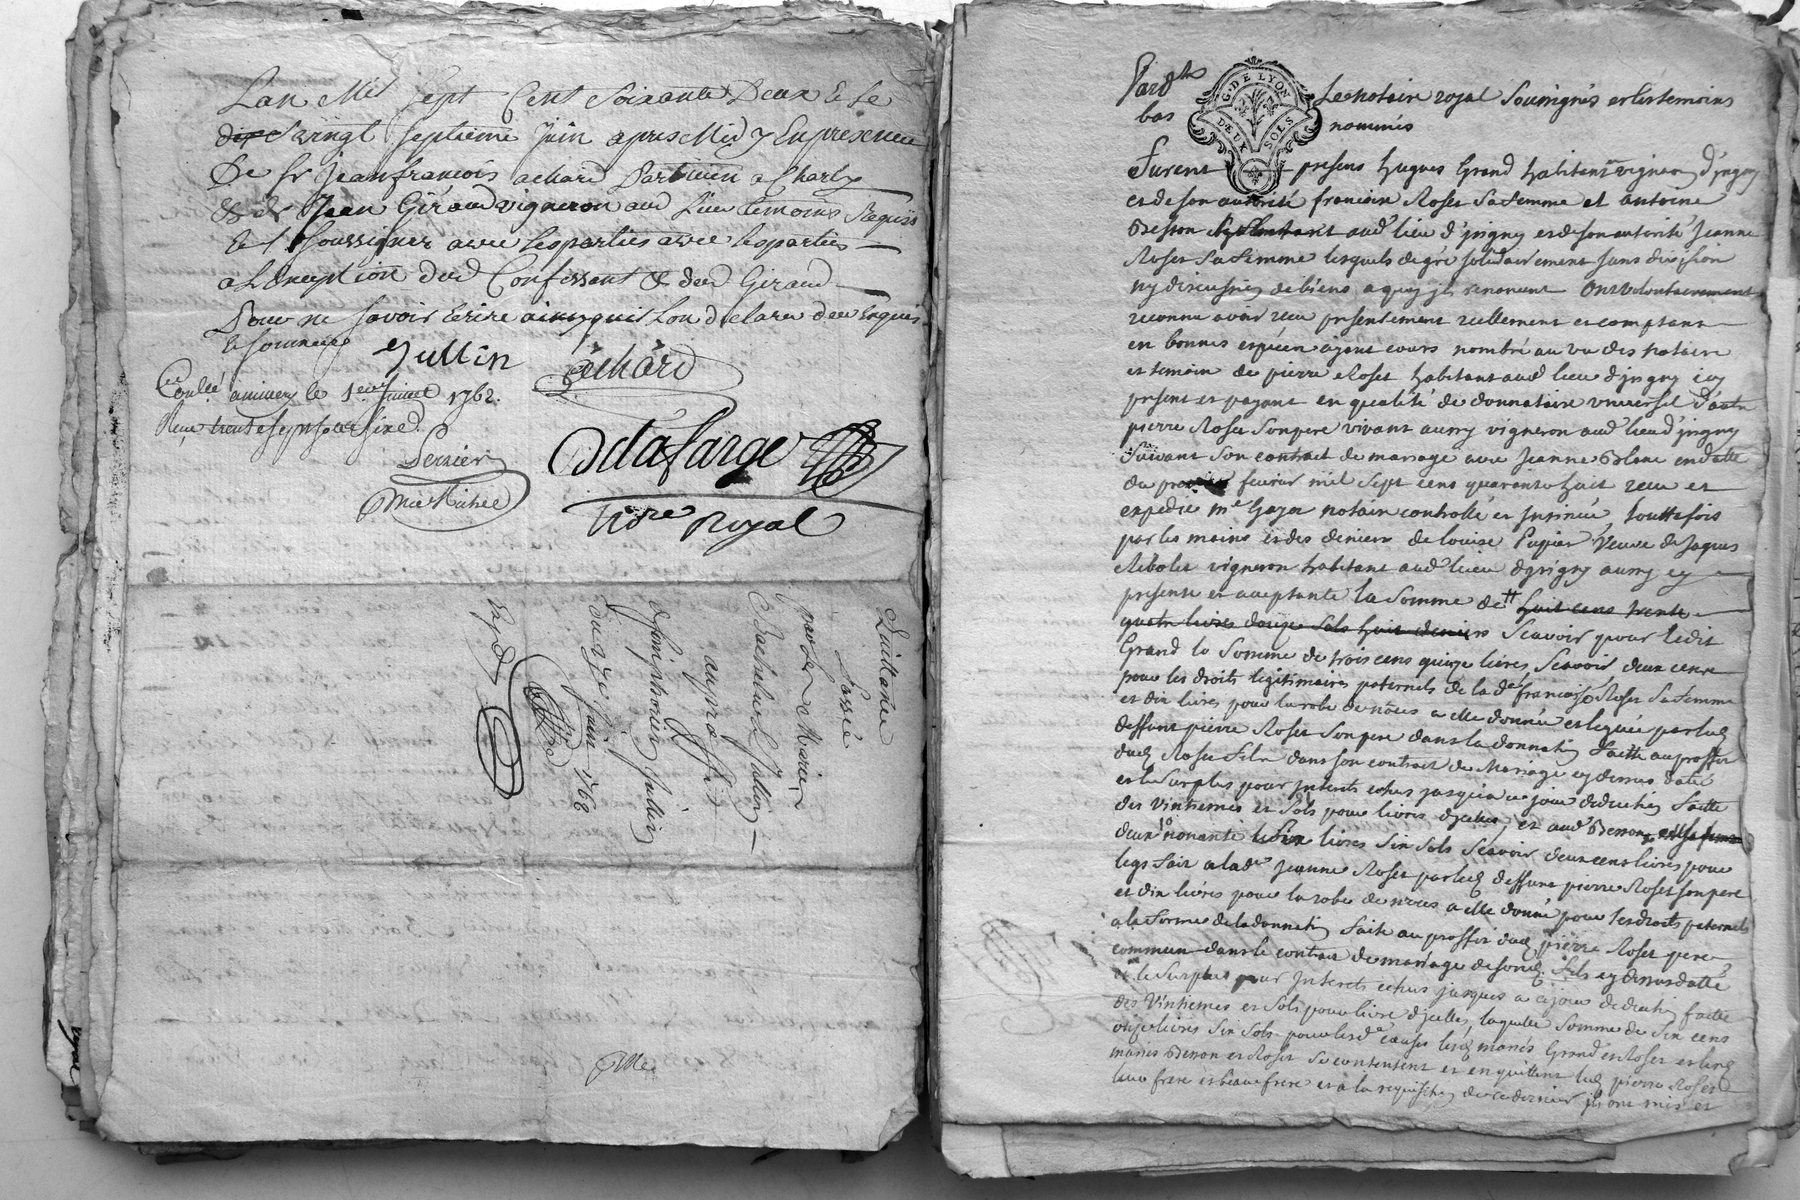 Lan Mil Sept Cent Soixante Deux & le
vingt septieme Juin apres Midy En presence
De sr Jean francois achard Particien a Charly
& de Jean Giraud vigneron aud Lieu temoins Requis
Et soussignez avec les parties avec les parties
a Lexception dud Confessant & dud Giraud
Pour ne savoir Ecrire ainsy quil Lon declare deu Enquis
Et sommés
Jullin achard
Conllé a le 1er Juillet 1762.
Reçu trente sept sols six d.
Perrier
Delafarge
Nore Royal
Quittance
passée
par Marien
Bachelu
au proffit
Simphorien Jullin
juin 1762
Exped
Par dts
bas
G. DE LYON
DEUX SOLS
Le notaire royal Soussignés et les temoins
nommés
Furent presens hugues Grand habitant vigneron d'jrigny
et de son autorité francoise Roset Sa femme et antoine
Besson aud lieu d'jrigny et de son autorité Jeanne
Roset Sa femme lesquels de gré solidairement sans division
ny discussion de biens a quoy jls renoncent ont volontairement
reconnu avoir recu presentement reellement et comptant
en bonnes especes ayant cours nombré au vu des notaire
et temoin de pierre Roset habitant aud lieu d'jrigny icy
present et payant en qualité de donnataire universel d'autre
pierre Roset Son pere vivant aussy vigneron aud lieu d'jrigny
Suivant Son contrat de mariage avec Jeanne Blanc en datte
du fevrier mil Sept cens quarante huit recu et
expedié me Gayot notaire controllé et Jnsinué, touttefois
par les mains et des deniers de louise Papier Veuve de Jaques
Ribolet vigneron habitant aud lieu d'jrigny aussy cy
presente et acceptante la Somme de huit cens trente
quatre livres douze Sols huit deniers Scavoir pour ledit
Grand la Somme de trois cens quinze livres Scavoir deux cens
pour les droits legitimaires paternels de la de francoise Roset Sa femme
et dix livres pour la robe de nôces a elle donnée et leguée par led
deffunt pierre Roset Son pere dans la donnation faitte au proffit
dud Roset fils dans son contrat de Mariage cy dessus datté
et le Surplus pour Jnterets echus jusqu'a ce jour deduction faitte
des vintiemes et Sols pour livres d'jceluy, et aud Besson
deux nonante livres Six Sols Scavoir deux cens livres pour
legs fait a lade Jeanne Roset par led deffunt pierre Roset son pere
et dix livres pour la robe de nôces a elle donné pour les droits paternels
a la forme de la donnation faite au proffit dud pierre Roset pere
commun dans le contrat de mariage de son fils cy dessus datté
et le Surplus pour Jnterets echus jusques a ce jour deduction faitte
des Vintiemes et Sols pour livre d'jcelles, laquelle Somme de Six cens
onze livres Six Sols pour les de causes lesd mariés Grand et Roset et lesd
mariés Besson et Roset Se contentent et en quittent led pierre Roset
leur frere et beau frere et a la requisition de ce dernier jls ont mis et